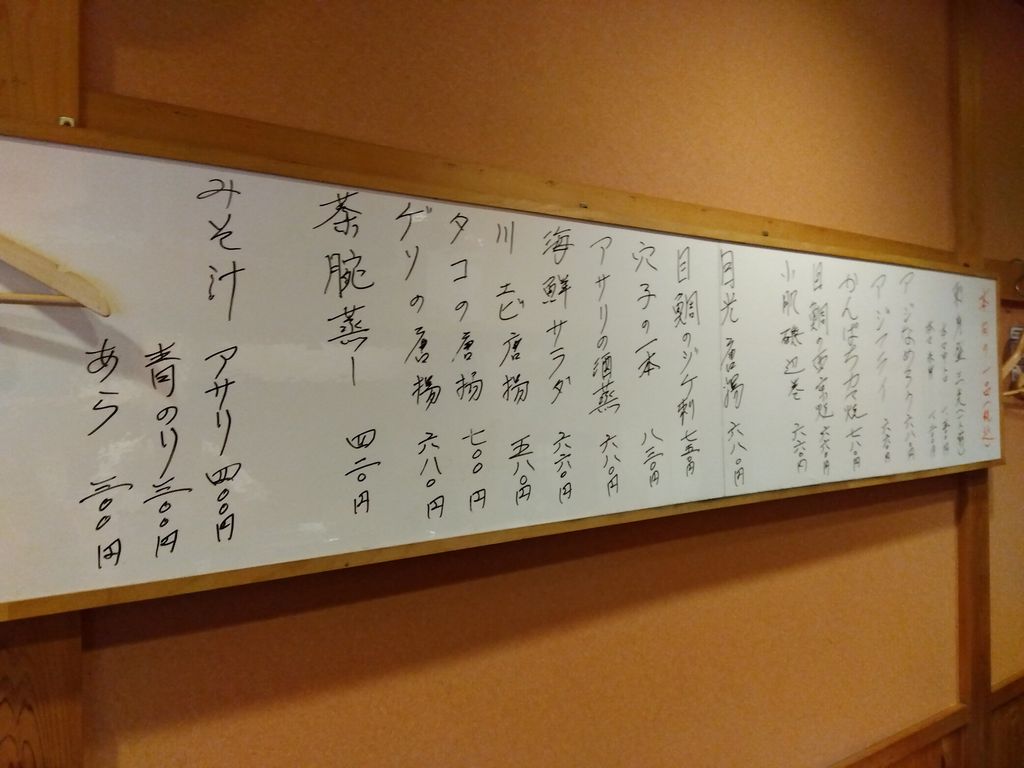 本日の一品料理
アジなめろう 六八〇円
アジフライ 六六〇円
かんぱちカマ焼 七八〇円
目鯛の西京焼 六六〇円
小肌磯辺巻 六六〇円
目光唐揚 六八〇円
目鯛のジケ刺 七五〇円
穴子の一本 八三〇円
アサリの酒蒸 六八〇円
海鮮サラダ 六六〇円
川エビ唐揚 五八〇円
タコの唐揚 七〇〇円
ゲソの唐揚 六八〇円
茶腕蒸し 四二〇円
みそ汁 アサリ 四〇〇円
青のり 三〇〇円
あら 三〇〇円